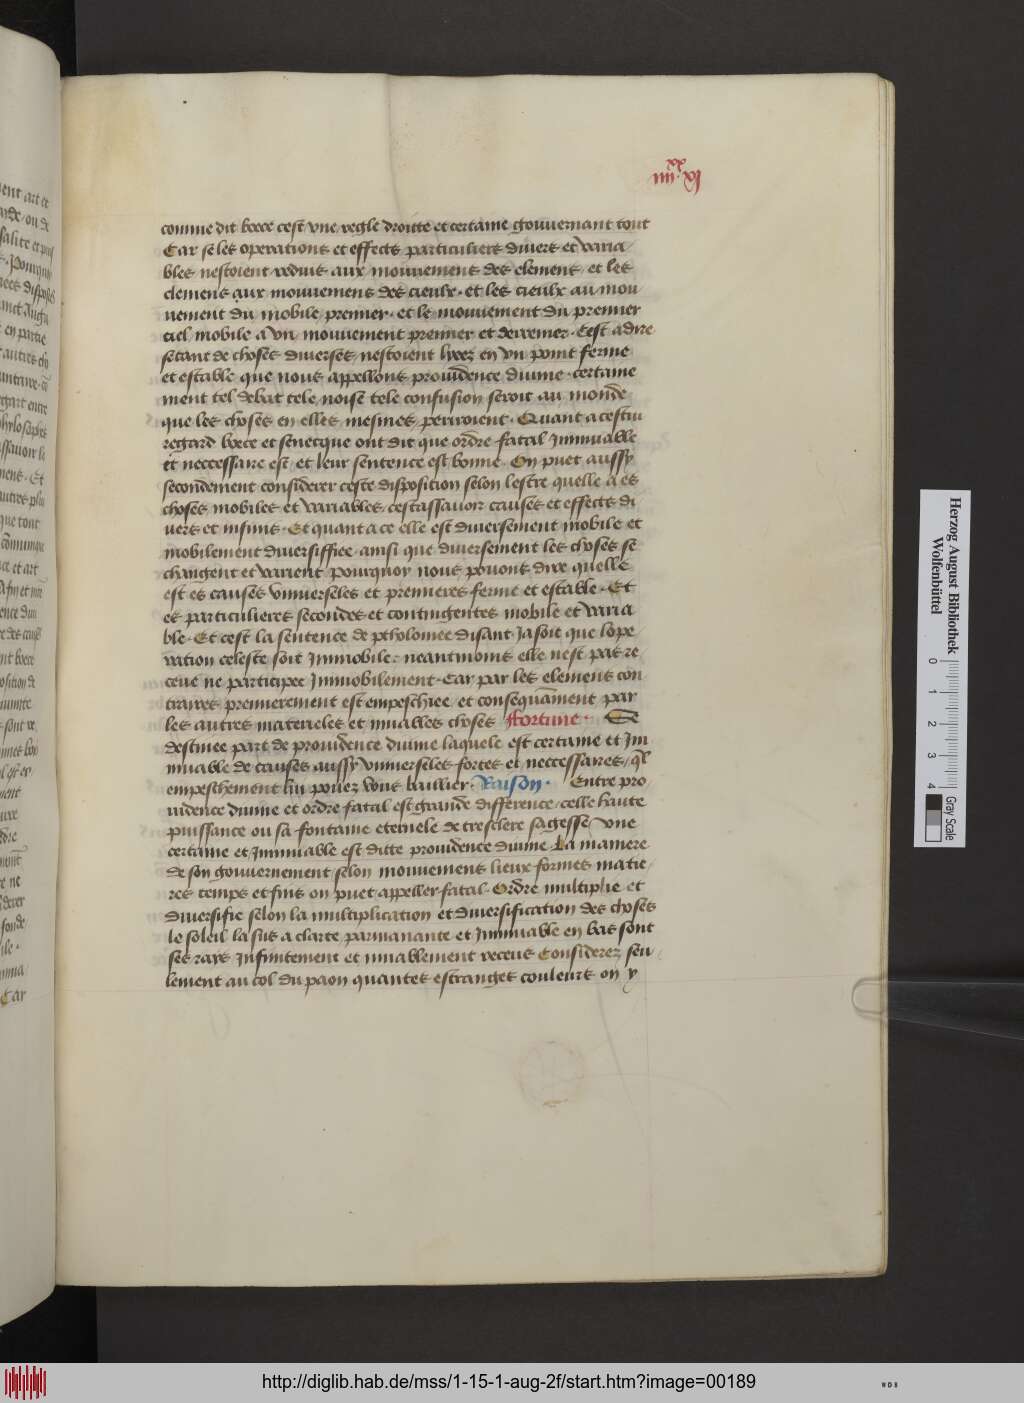 xx
iiii . vj
comme dit boece cest vne regle droitte et certaine gouuernant tout
Car se les operations et effects particuliers diuers et varia
bles nestoient reduis aux mouuemens des elemens / et les
elemens aux mouuemens des cieulx . et les cieulx au mou
uement du mobile premier . et le mouuement du premier
ciel mobile a vn mouuement premier et derrenier . Cest a dire
se tant de choses diuerses / nestoient lyeez en vn point ferme
et estable que nous appellons prouidence diuine . certaine
ment tel debat tele noise tele confusion seroit au monde
que les choses en elles mesmes / periroient . Quant a cestui
regard boece et senecque ont dit que ordre fatal Inmuable
et neccessaire est / et leur sentence est bonne . On puet aussy
secondement considerer ceste disposition selon lestre quelle a es
choses mobiles et variables / cestassauoir causes et effects di
uers et infinis . Et quant a ce elle est diuersement mobile et
mobilement diuersiffiee . ainsi que diuersement les choses se
changent et varient pourquoy nous pouons dire quelle
est es causes vniuerseles et premieres ferme et estable . Et
es particulieres secondes et contingentes mobile et varia
ble . Et cest la sentence de ptholomee disant . Ja soit que lope
ration celeste soit Immobile : neantmoins elle nest pas re
ceue ne participee Immobilement . Car par les elemens con
traires premierement est empeschiee / et consequãment par
les autres materieles et muables choses Fortune . Se
destinee part de prouidence diuine laquele est certaine et Im
muable de causes aussy vniuerseles fortes et neccessaires / ql
empeschement lui pouez vous baillier . Raison . Entre pro
uidence diuine et ordre fatal est grande difference / celle haute
puissance ou sa fontaine eternele de tresclere sagesse / vne
certaine et Immuable est ditte prouidence diuine . La maniere
de son gouuernement / selon mouuemens lieux formes matie
res temps et fins on puet appeller fatal . Ordre multiplie et
diuersifie selon la multiplication et diuersification des choses
le soleil la sus a clarte parmanante et Inmuable en bas sont
ses rays Infinitement et muablement receus Considerez seu
lement au col du paon quantes estranges couleurs on y
Herzog August Bibliothek
Wolfenbüttel
0 1 2 3 4
Gray Scale
http://diglib.hab.de/mss/1-15-1-aug-2f/start.htm?image=00189
WDB